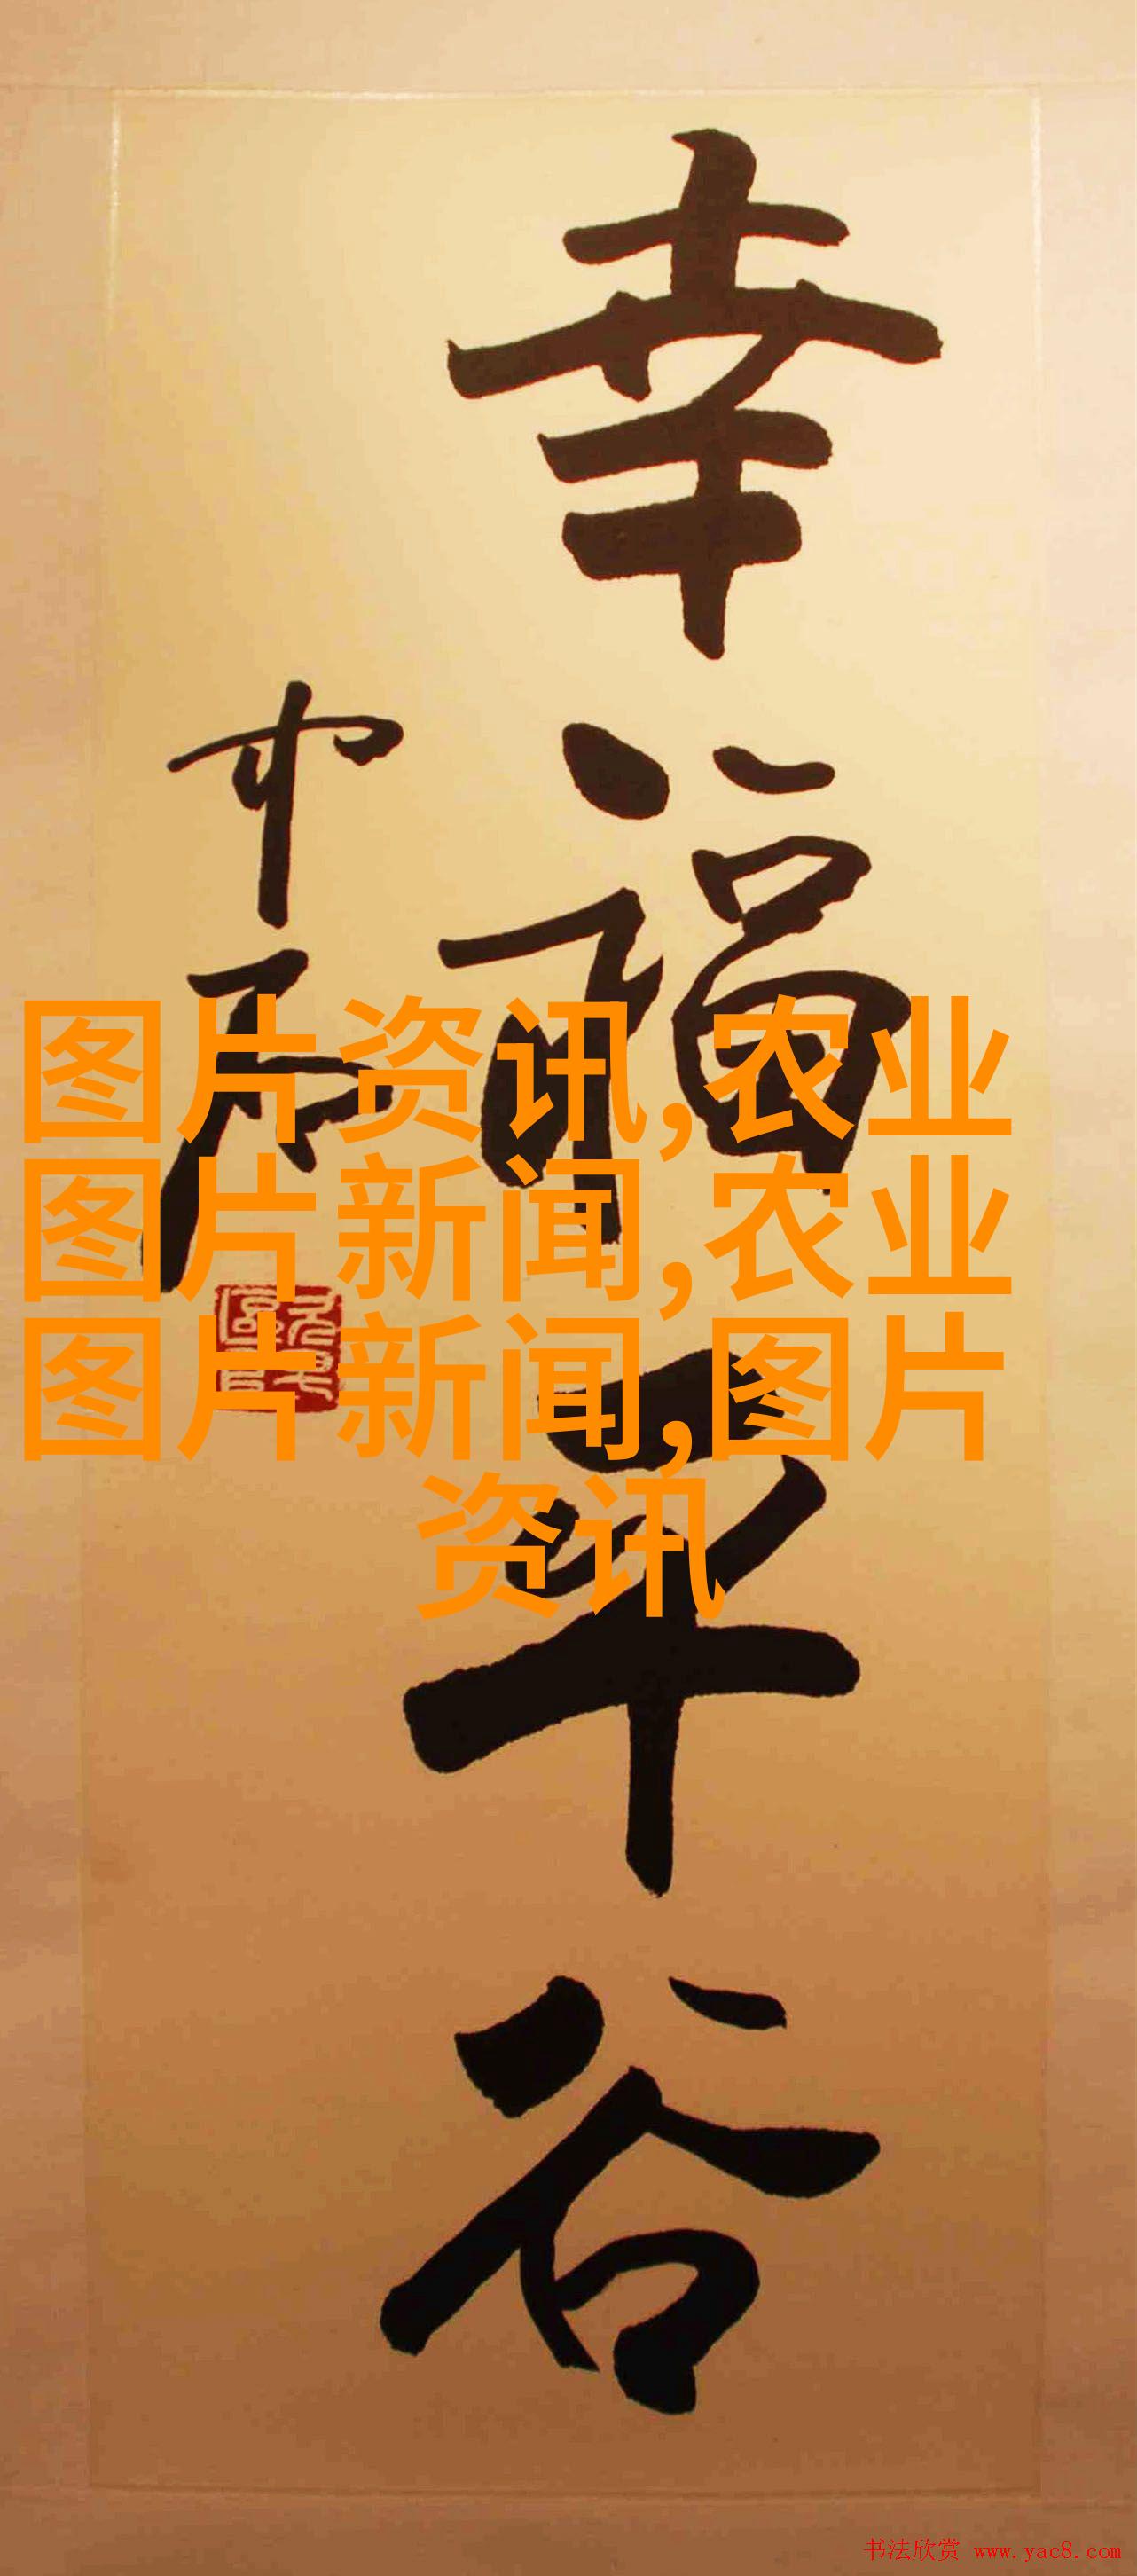 幸福平谷
图片资讯,农业
图片新闻,农业
图片新闻,图片
资讯
书法欣赏 www.yac8.com